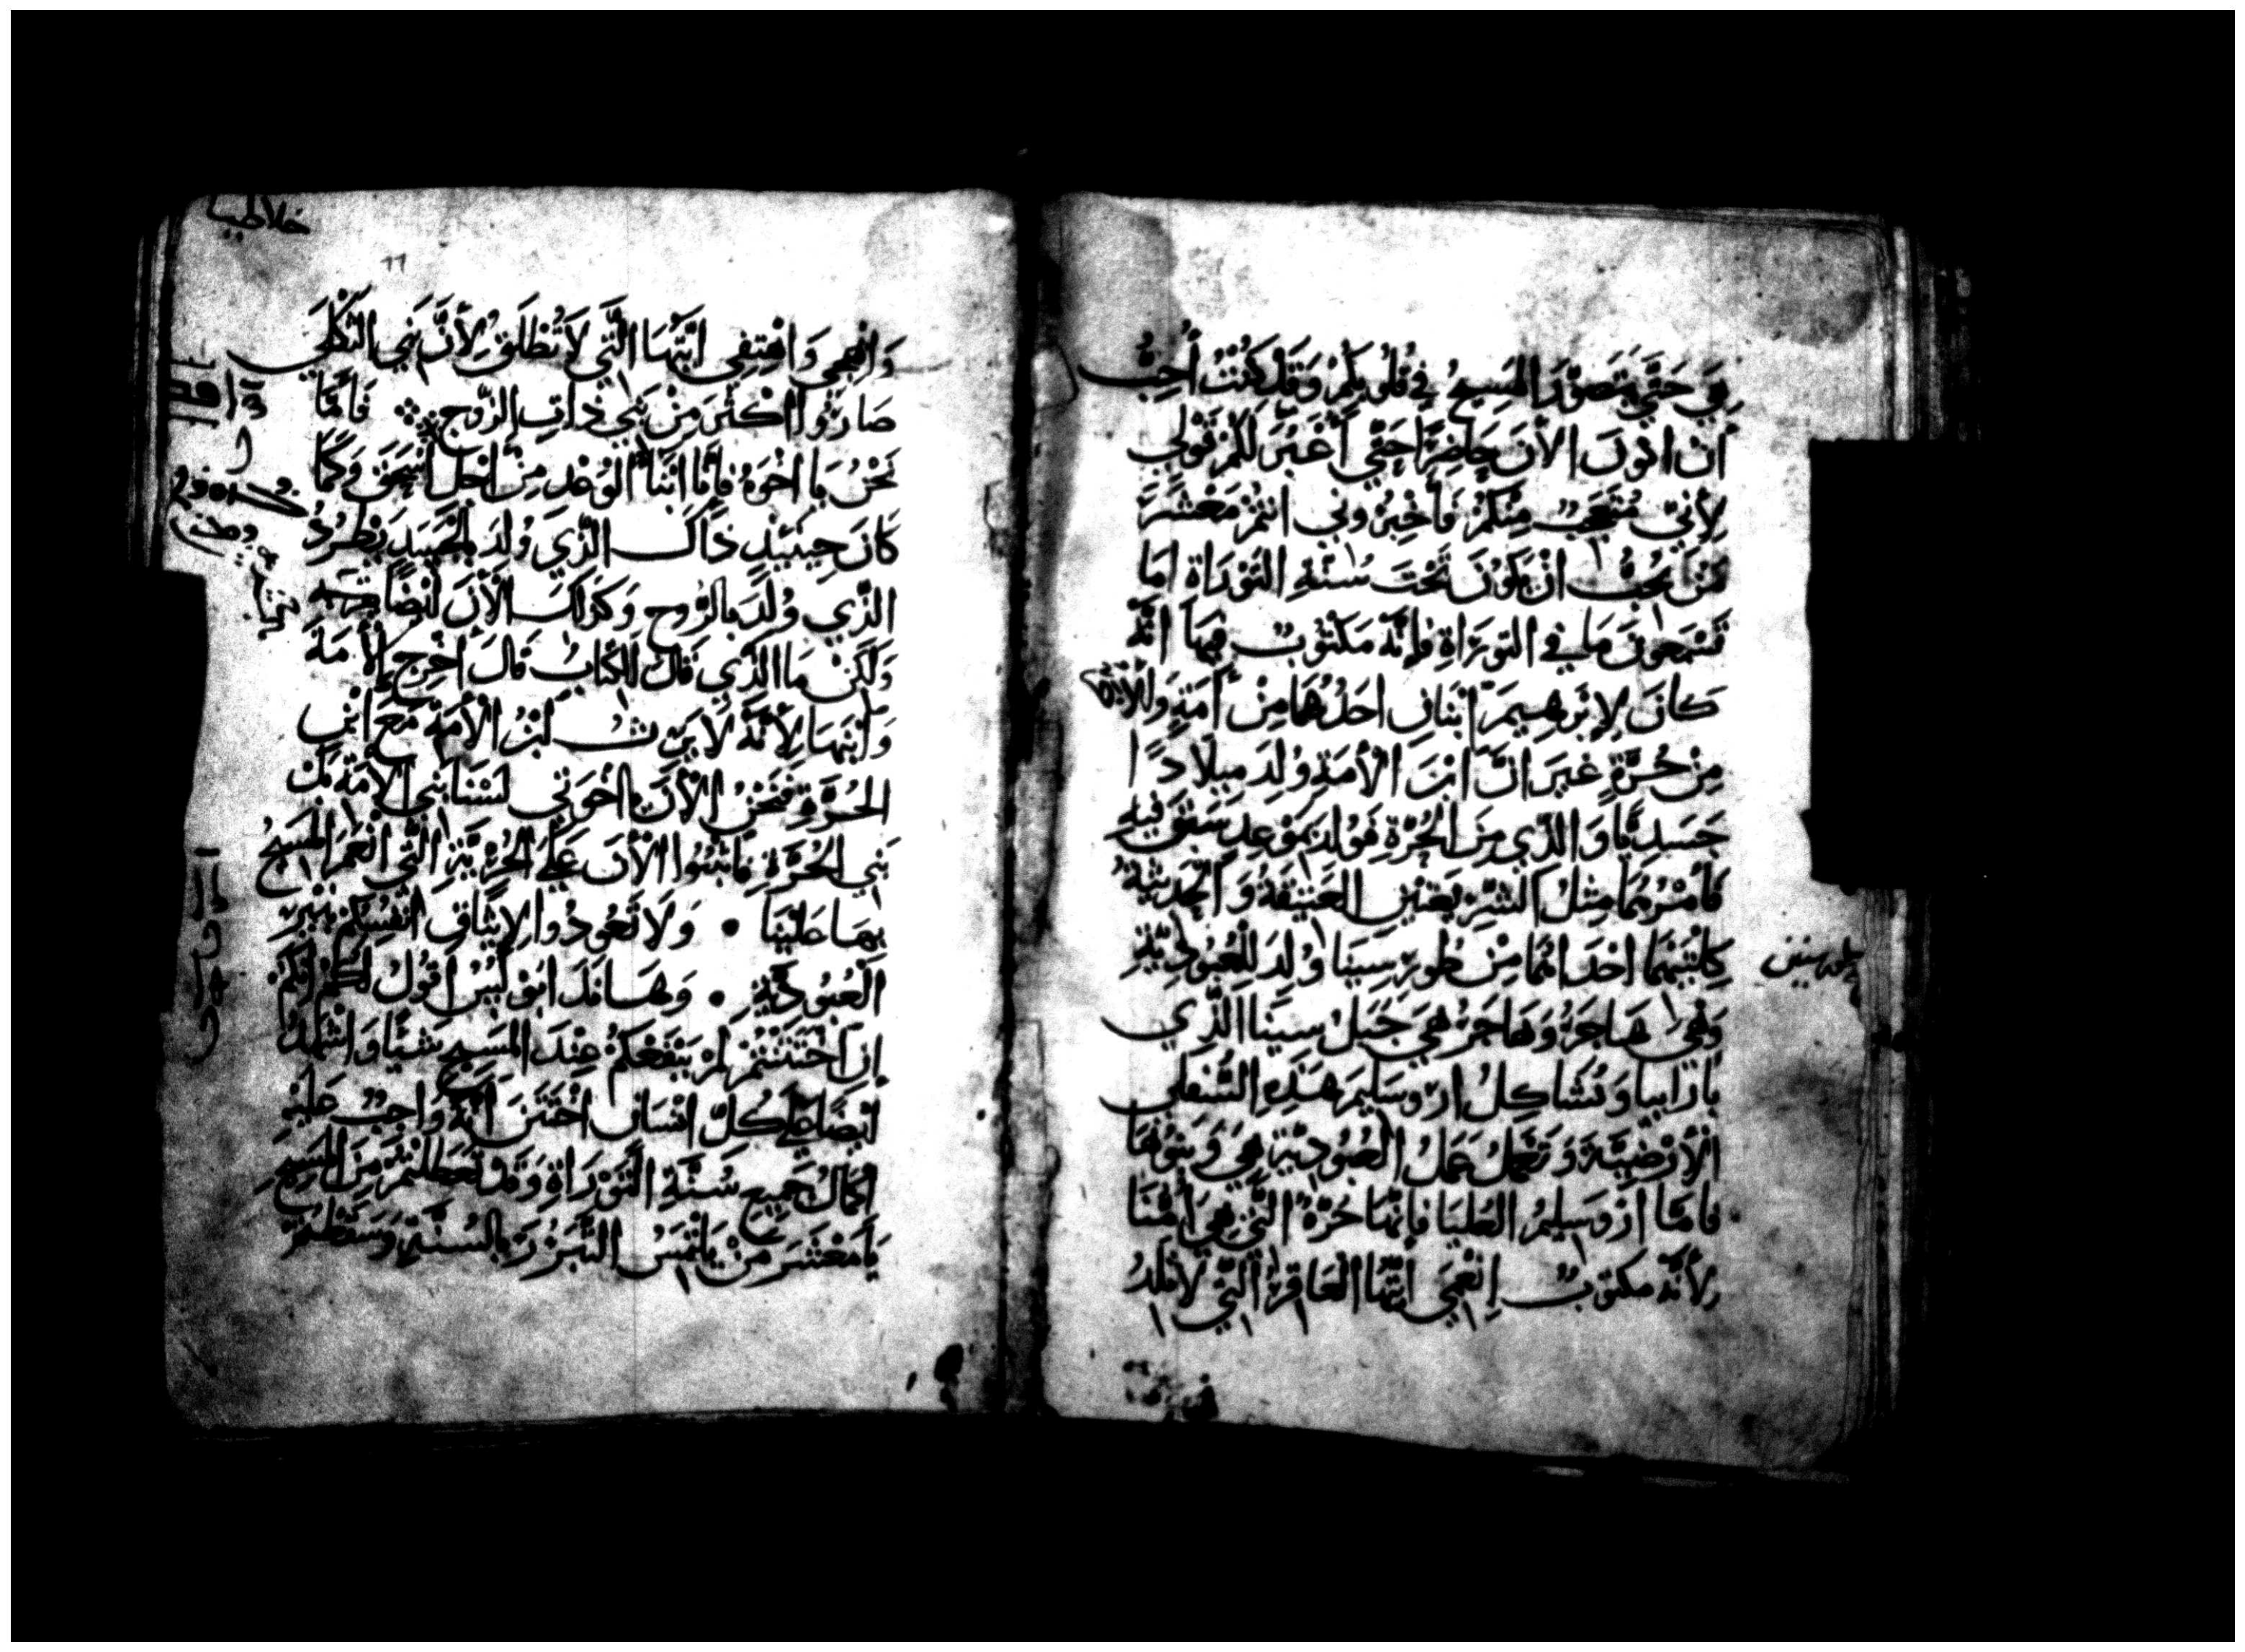 بِي حَتَّى يَتَصَوَّرَ المَسِيحُ فِي قُلُوبِكُمْ وَقَدْ كُنْتُ أُحِبُّ
أن اكونَ الأنَ حَاضِرًا حَتَّي أغَيِّرَ لَكُمْ قَوْلِي
لِأَنِّي مُتَعَجِّبٌ مِنْكُمْ فَأَخْبِرُونِي انتُمْ مَعْشَرَ
مَنْ يُحِبُّ انْ يَكُونَ تَحْتَ سُنَّةِ التَوْرَاةِ امَا
تَسْمَعُونَ مَا فِي التَورَاةِ فَإنَّهُ مَكْتُوبٌ فِيهَا انَّهُ
كَانَ لِإبْرَهِيمَ ابْنَانِ احَدُهُمَا مِنْ أَمَةٍ وَالآخَرُ
مِنْ حُرَّةٍ غَيرَ انَّ ابْنَ الْأَمَةِ وُلِدَ مِيلَادًا
جَسَدِيًّا وَالَّذِي مِنَ الحُرَّةِ فَوُلِدَ بِمَوْعِدٍ سَبَقَ فِيهِ
فَأَمْرُهُمَا مِثْلُ الشَّرِيعَتَيْنِ العَتِيقَةُ وَالحَدِيثَةُ
كِلْتَيْهِمَا احْدَاهُمَا مِنْ طُورِ سِينَا وُلِدَ لِلْعُبُودِيَّةِ
وَهِيَ هَاجَرُ وَهَاجَرُ هِيَ جَبَلُ سِينَا الَّذِي
بِارَابِيا وَتُشَاكِلُ اروسَلِيمَ هَذِهِ السُّفلَى
الْأَرْضِيَّةَ وَتَعْمَلُ عَمَلَ العُبُودِيَّةِ هِيَ وَبَنُوهَا
فَامَّا ارُوسَلِيمُ العُليَا فَإنَّهَا حُرَّةٌ الَّتِي هِيَ أُمُّنَا
لأنَّهُ مكتوبٌ انْعَمِي أيَّتُهَا العَاقِرُ الَّتِي لَا تَلِدُ
طور سينين
خلاطيا
وَابْهجِي وَاهْتِفِي ايَّتُهَا الَّتِي لَا تُطْلَقُ لِأَنَّ بَنِي الثَكْلَى
صَارُوا اكْثَرَ مِنْ بَنِي ذَاتِ الزَّوجِ فَأمَّا
نَحْنُ يَا اخْوَةُ فَإنَّا ابْنَا الوَعْدِ مِنْ اجلِ اسْحَقَ وَكَمَا
كَانَ حِينَئِذٍ ذَاكَ الَّذِي وُلِدَ بِالْجَسَدِ يَطْرُدُ
الَّذِي وُلِدَ بِالرُّوحِ وَكَذَلِكَ الْأَنَ ايْضًا
وَلَكِنْ مَا الَّذِي قَالَ الكِتَابُ قَالَ أَخْرِجِ الأمَةَ
وَابْنَهَا لِأَنَّهُ لَا يَرِثُ ابْنُ الأَمَةِ مَعَ ابْنِ
الحُرَّةِ فَنَحْنُ الْأَنَ يا اخْوَتِي لَسْنَا بَنِي الأَمَةِ بَل
بَنِي الحُرَّةِ فَاثْبُتُوا الْأَنَ عَلَى الحُرِّيَّةِ الَّتِي انْعَمَ المَسِيحُ
بِهَا عَلَيْنَا • وَلَا تَعُودُوا لِإيثَاقِ انفُسِكُمْ بِنِيرِ
العُبُودِيَّةِ • وَهَا نَذَا بَوْلُسُ اقُولُ لَكُمْ انَّكُمْ
إنِ اخْتَتَنْتُمْ لَمْ يَنْفَعْكُمْ عِنْدَ المَسِيحِ شَيْئًا وَاشْهَدُ
ايْضًا عَلَى كُلِّ انْسَانٍ اخْتَتَنَ أَنَّهُ وَاجِبٌ عَلَيْهِ
اكمَالُ جَمِيعِ سُنَّةِ التَّوْرَاةِ وَقَدْ تَعَطَّلْتُمْ مِنَ المَسِيحِ
يَا مَعْشَرَ مَنْ يَلْتَمِسُ التَّبَرُّرَ بِالسُنَّةِ وَسَقَطْتُمْ